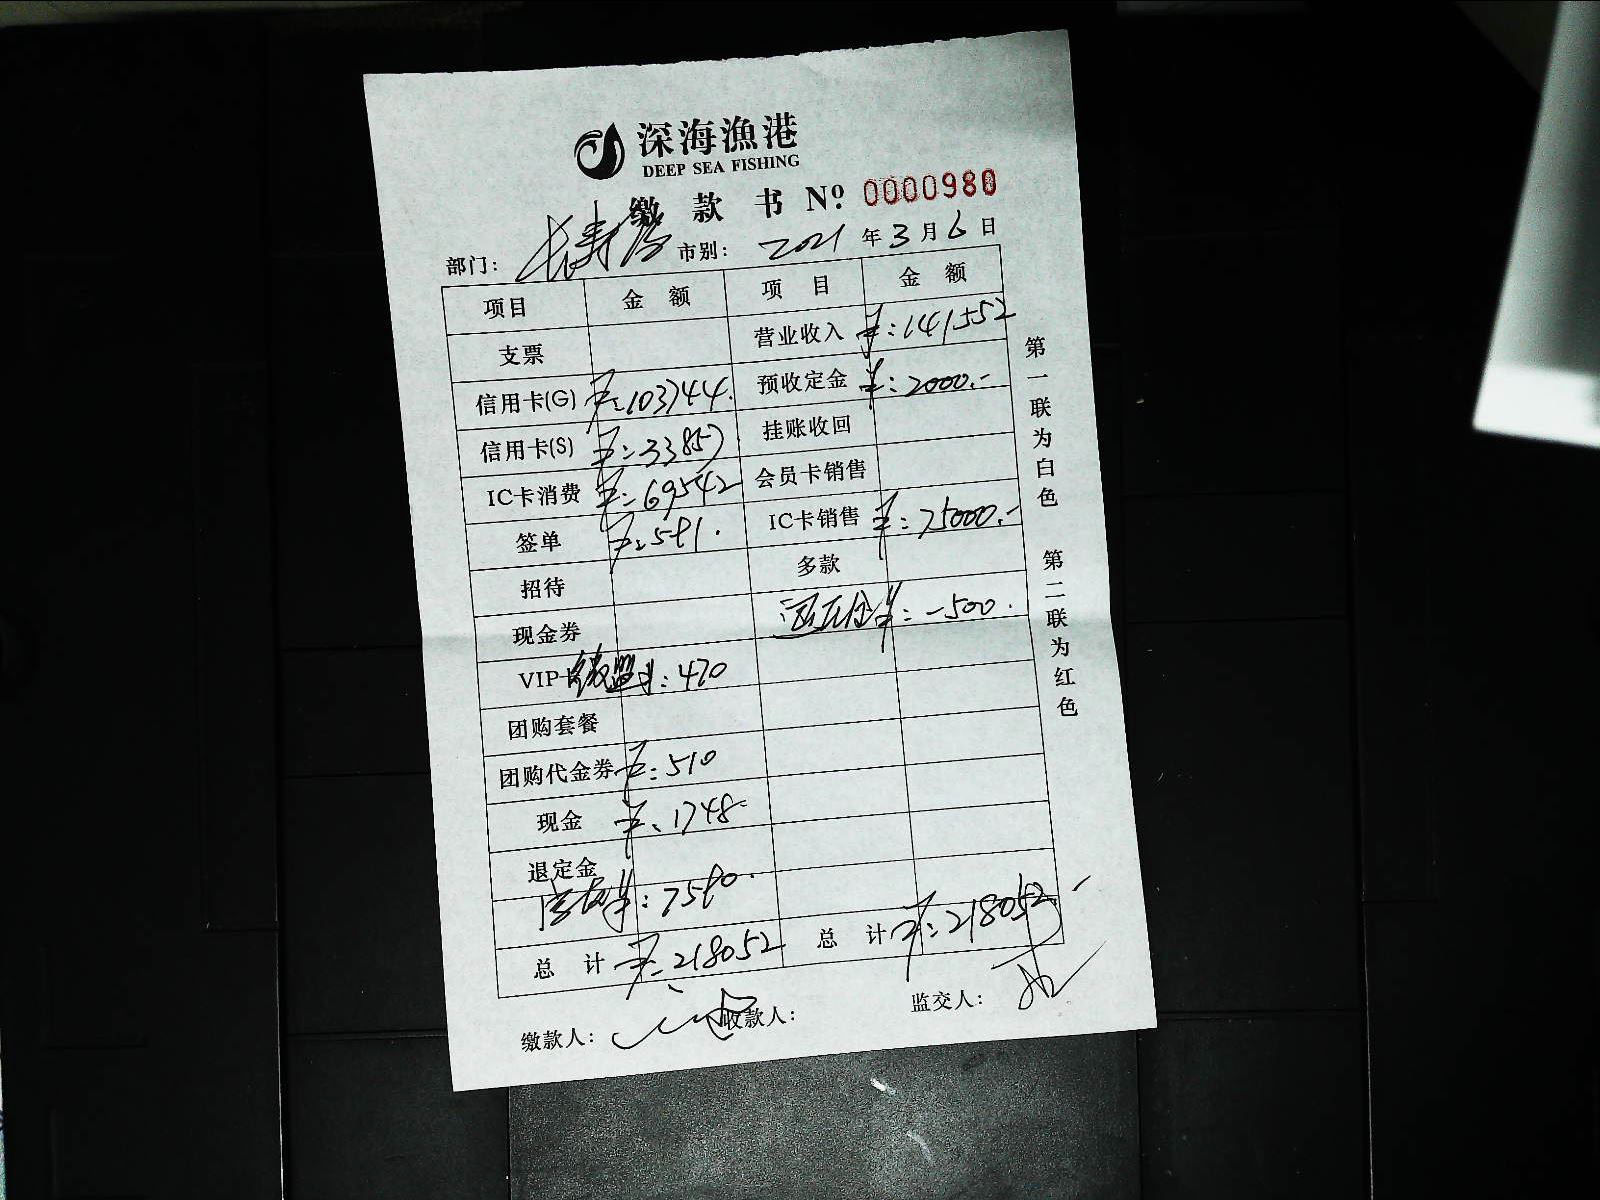 深海渔港
DEEP SEA FISHING
缴款书 Nº: 0000980
部门: 长寿路 市别: 2021年3月6日
项目 金额 项目 金额
支票 营业收入 ¥:141552
信用卡(G) ¥:103744. 预收定金 ¥:2000.-
信用卡(S) ¥:33857 挂账收回
IC卡消费 ¥:69542 会员卡销售
签单 ¥:591. IC卡销售 ¥:75000.-
招待 多款
现金券 ¥:-500.
VIP卡 微盟 ¥:470
团购套餐
团购代金券 ¥:510
现金 ¥:1748-
退定金
¥:7590.
总计 ¥:218052 总计 ¥:218052.-
缴款人: 收款人: 监交人:
第一联为白色 第二联为红色